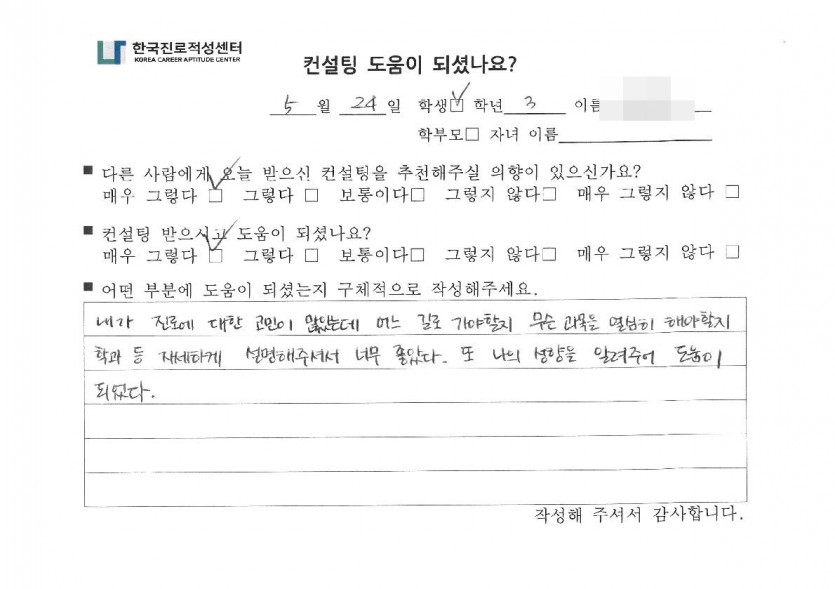 한국진로적성센터
KOREA CAREER APTITUDE CENTER
컨설팅 도움이 되셨나요?
5 월 24 일 학생☑ 학년 3 이름
학부모□ 자녀 이름
■ 다른 사람에게 오늘 받으신 컨설팅을 추천해주실 의향이 있으신가요?
매우 그렇다 ☑ 그렇다 □ 보통이다□ 그렇지 않다□ 매우 그렇지 않다 □
■ 컨설팅 받으시고 도움이 되셨나요?
매우 그렇다 ☑ 그렇다 □ 보통이다□ 그렇지 않다□ 매우 그렇지 않다 □
■ 어떤 부분에 도움이 되셨는지 구체적으로 작성해주세요.
내가 진로에 대한 고민이 많았는데 어느 길로 가야할지 무슨 과목을 열심히 해야할지
학과 등 자세하게 설명해주셔서 너무 좋았다. 또 나의 성향을 알려주어 도움이
되었다.
작성해 주셔서 감사합니다.